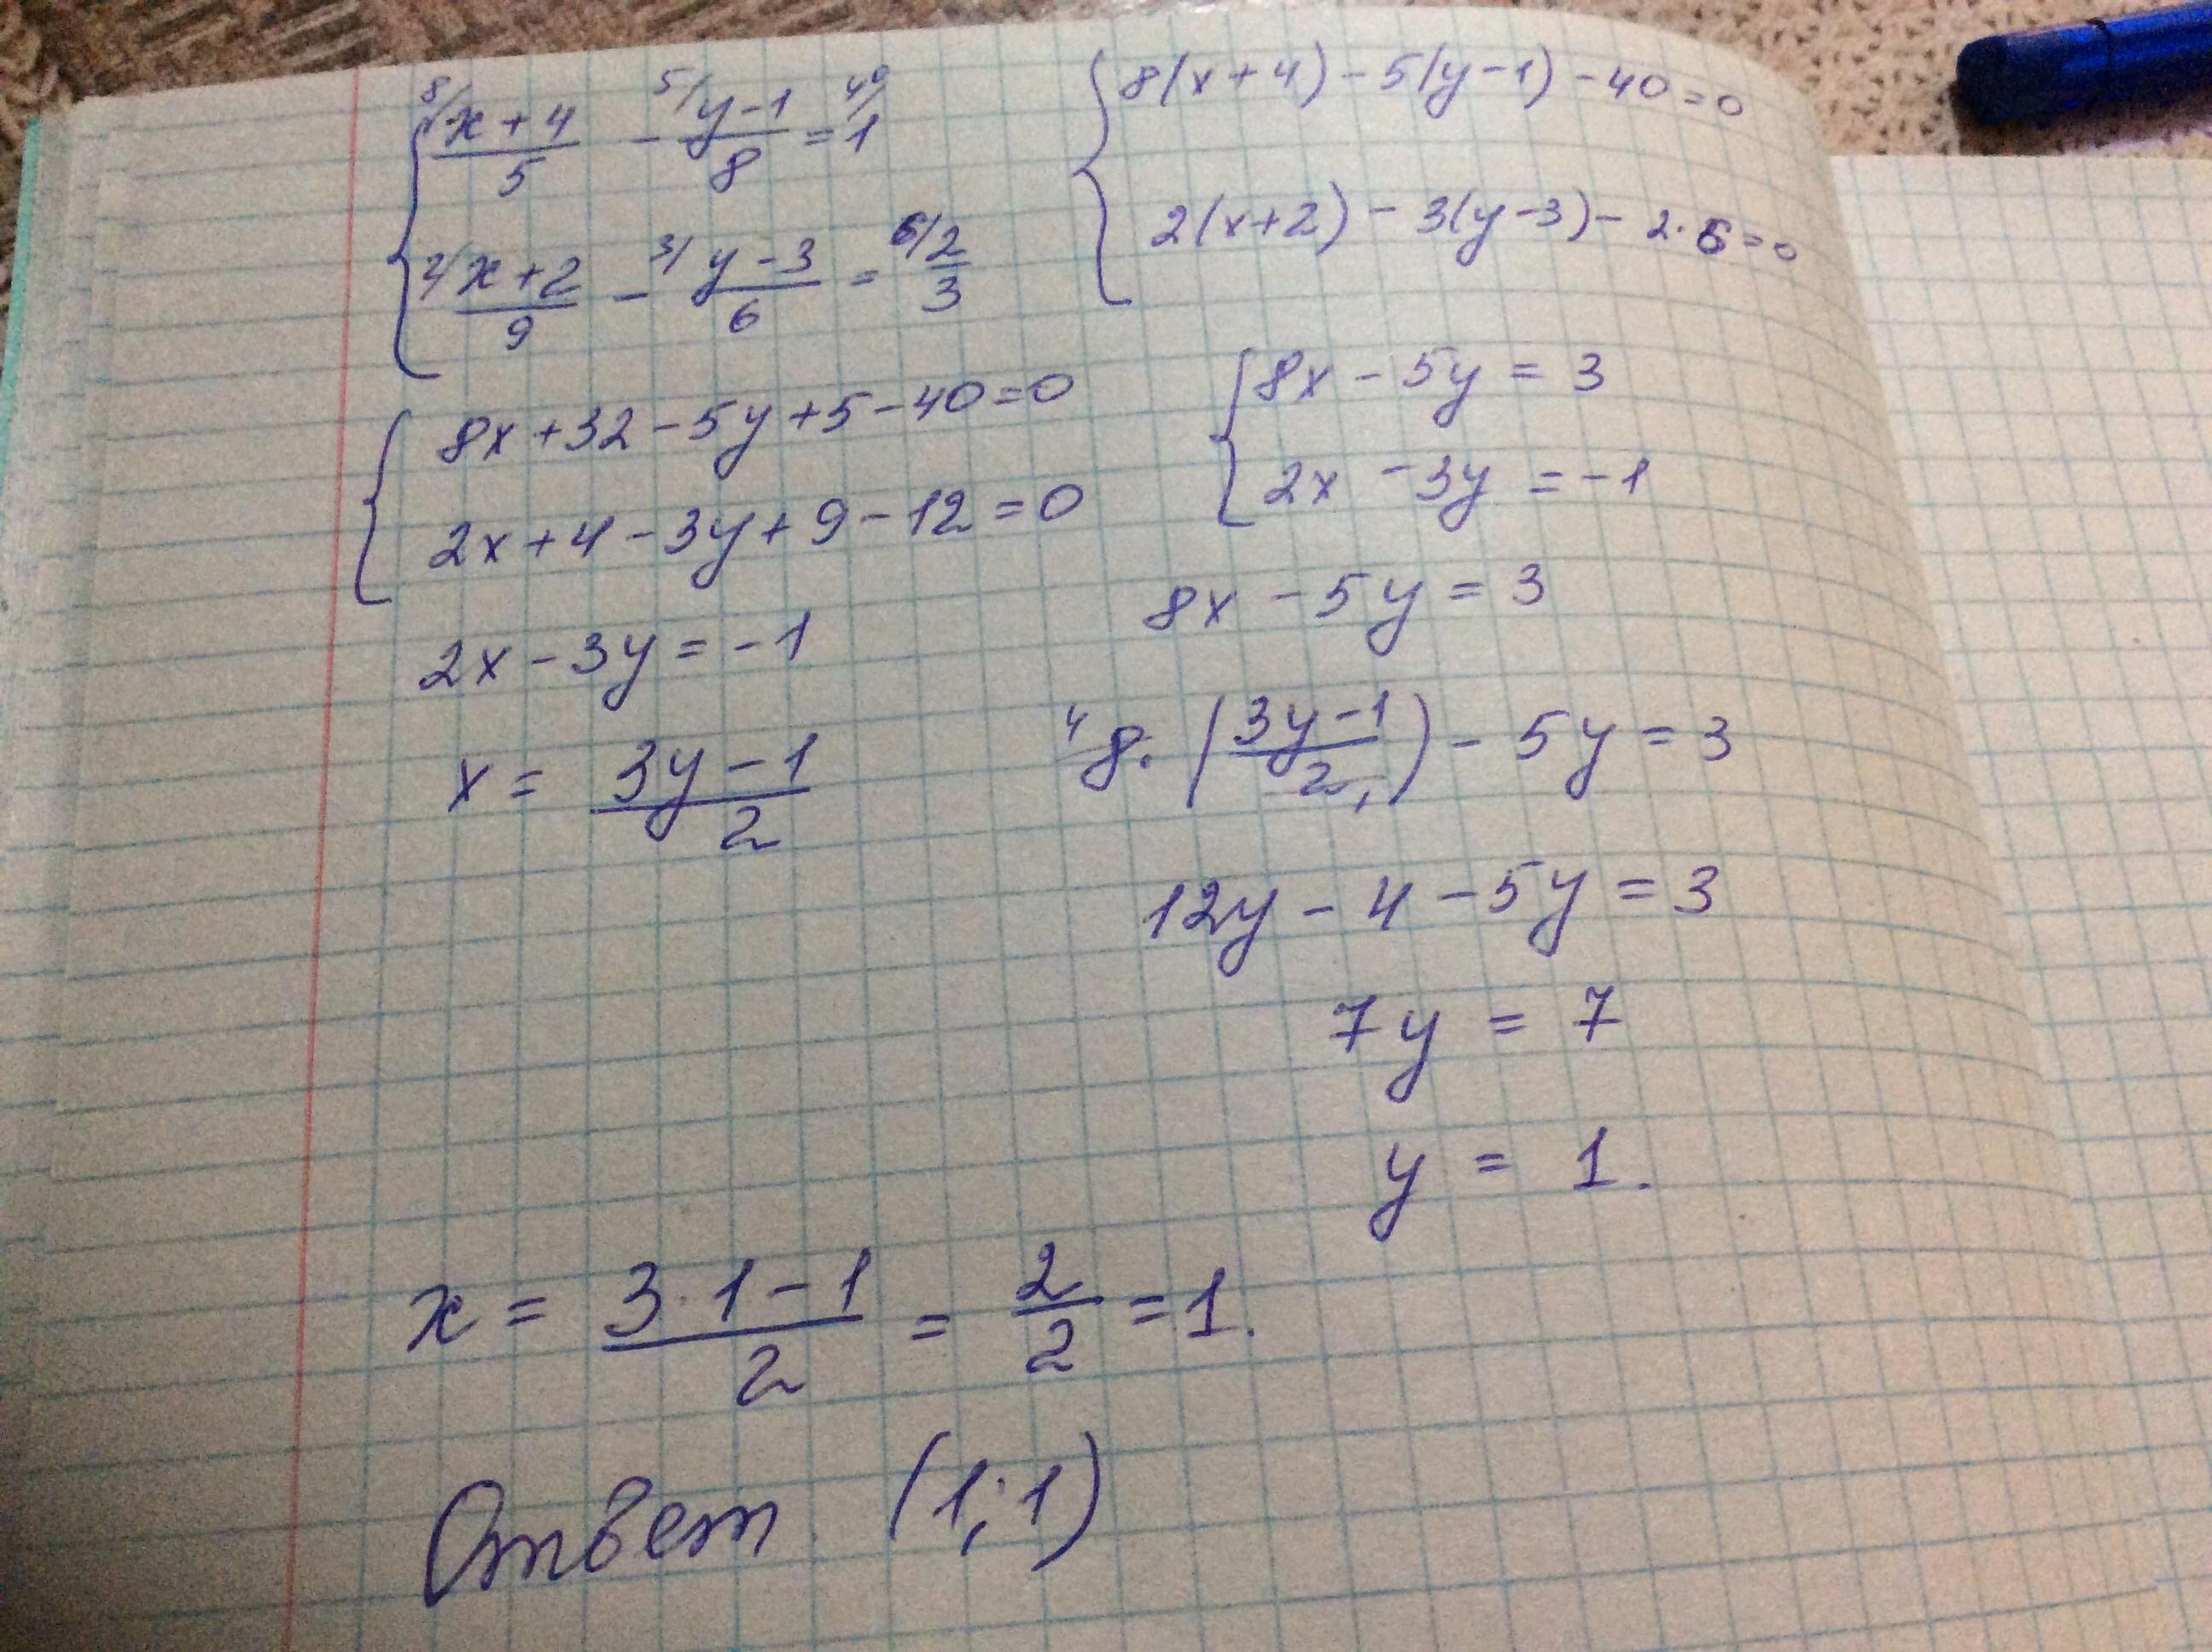 { ⁸/ x+4/5 - ⁵/ y-1/8 = ⁴⁰/ 1
²/ x+2/9 - ³/ y-3/6 = ⁶/ 2/3
{ 8(x+4) - 5(y-1) - 40 = 0
2(x+2) - 3(y-3) - 2·6 = 0
{ 8x + 32 - 5y + 5 - 40 = 0
2x + 4 - 3y + 9 - 12 = 0
{ 8x - 5y = 3
2x - 3y = -1
2x - 3y = -1
x = 3y-1/2
8x - 5y = 3
⁴8·(3y-1/2₁) - 5y = 3
12y - 4 - 5y = 3
7y = 7
y = 1.
x = 3·1-1/2 = 2/2 = 1.
Ответ (1;1)